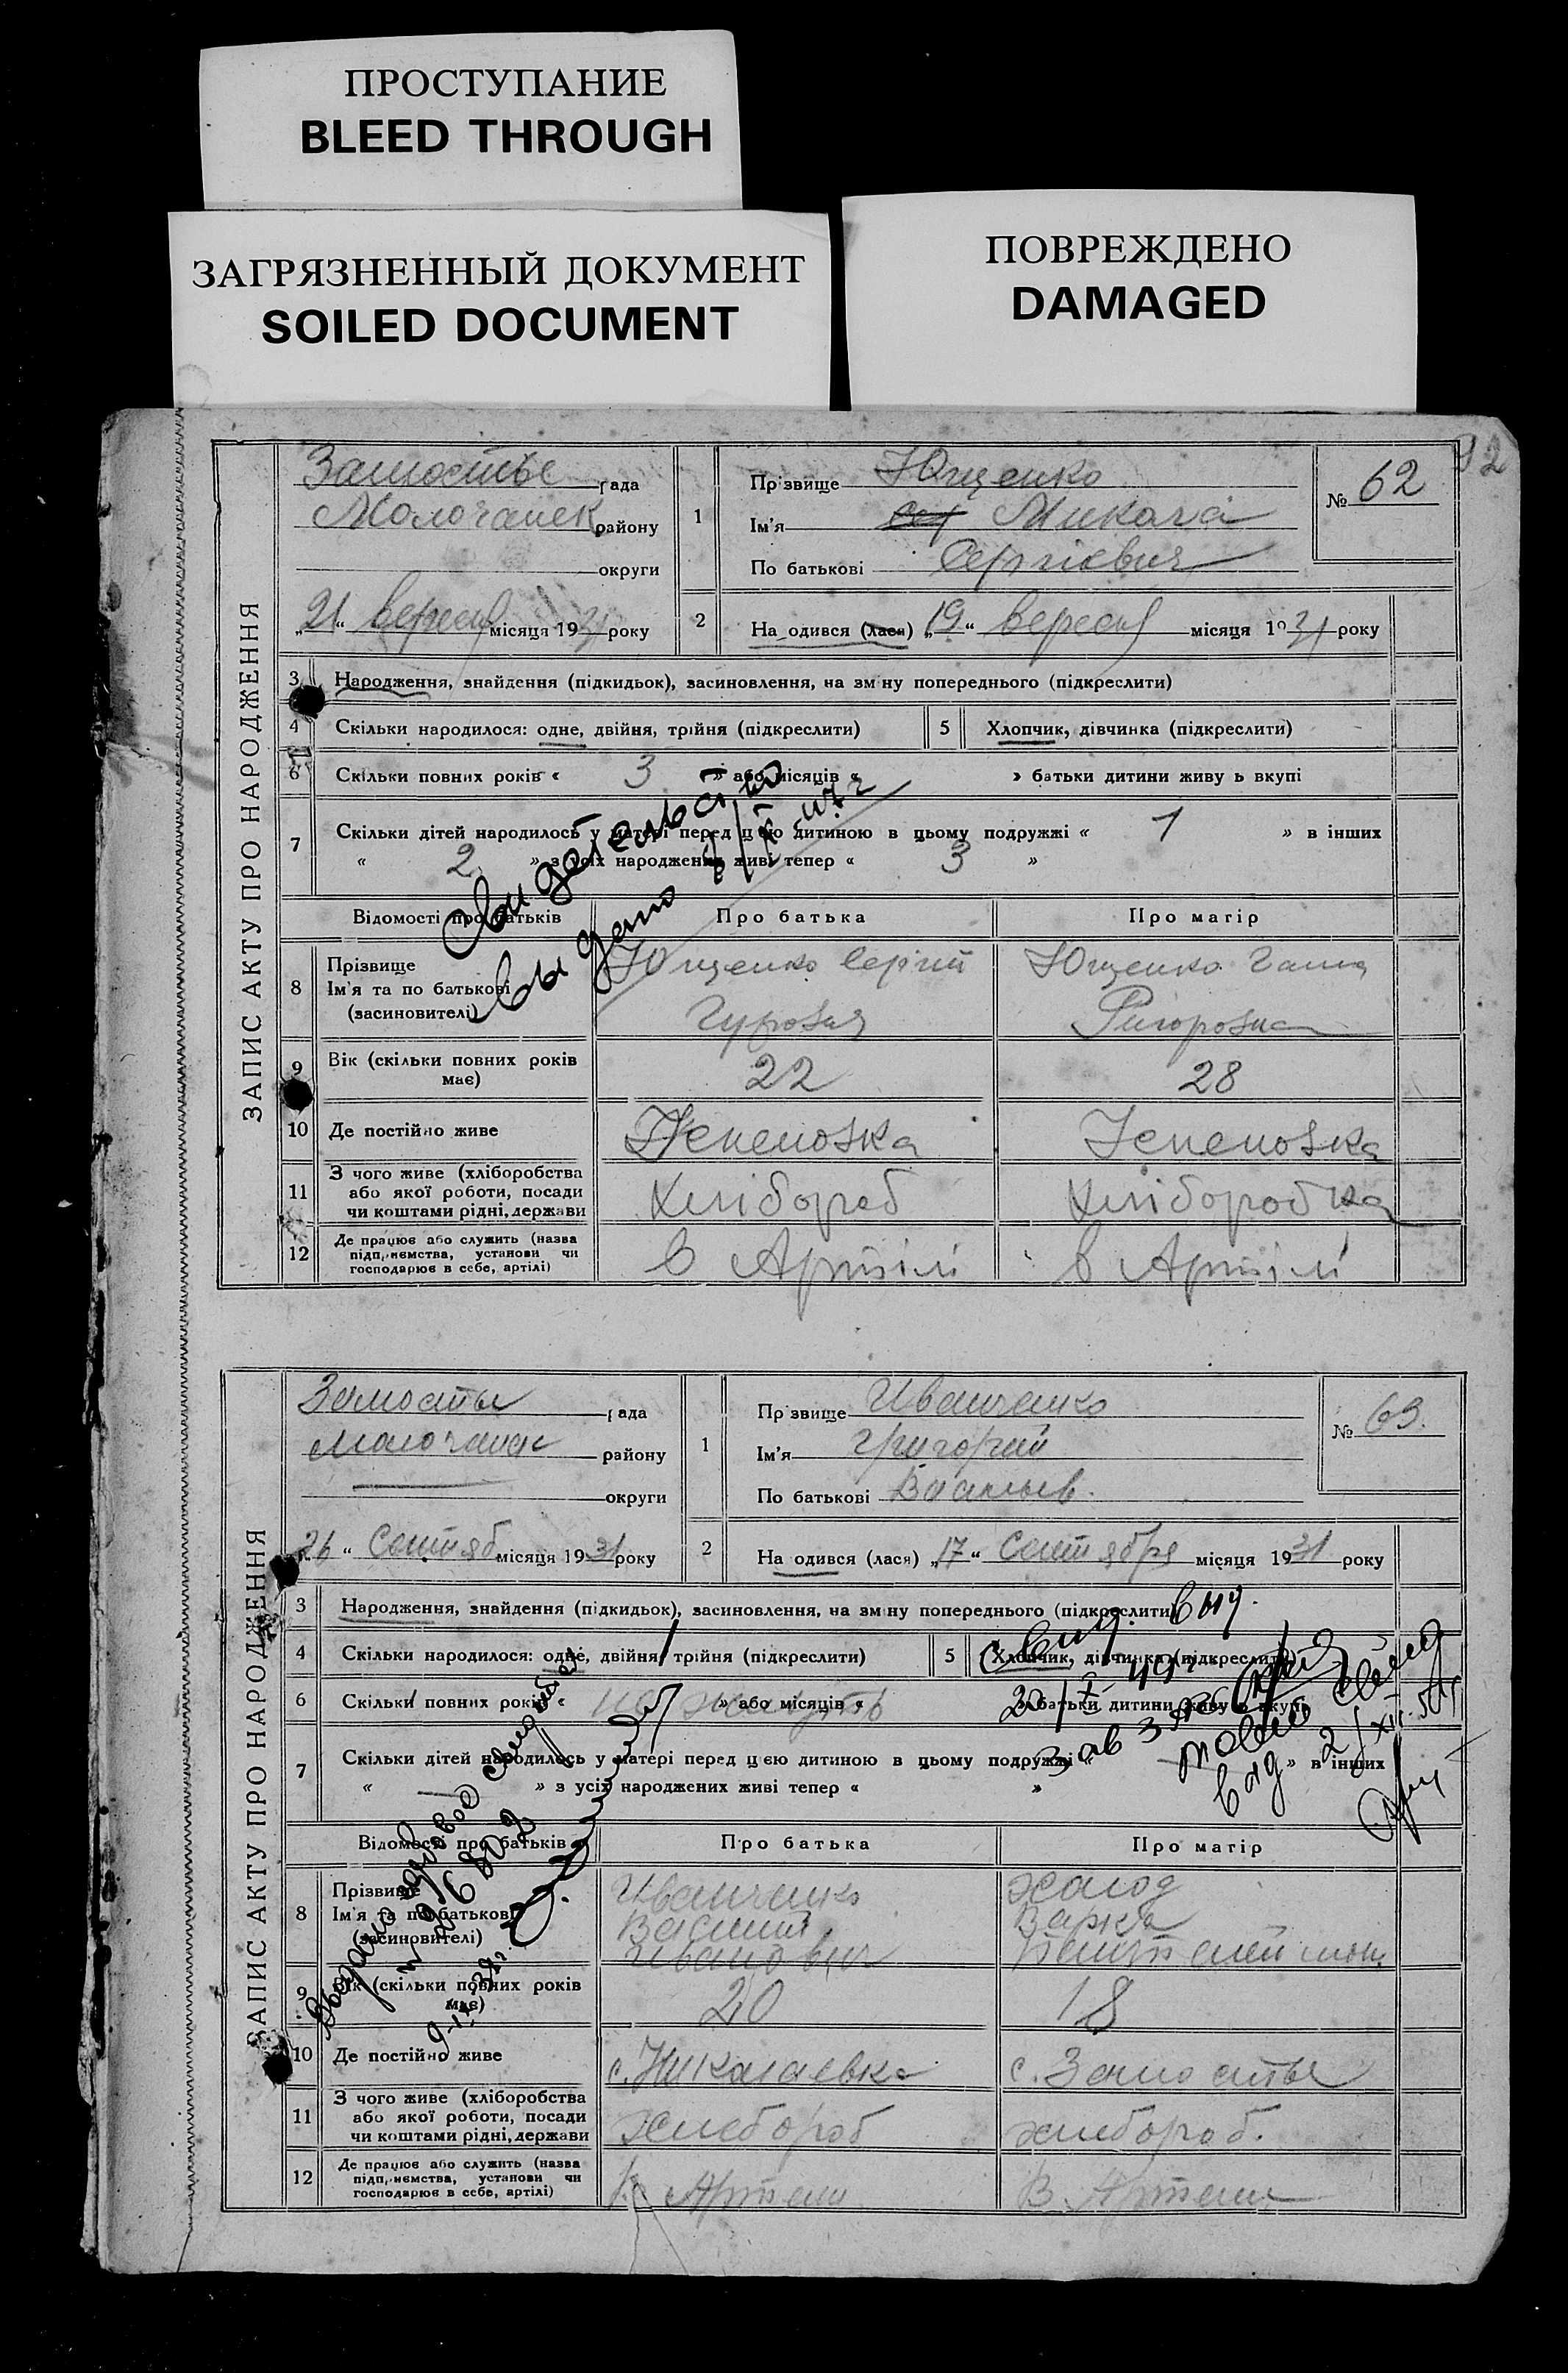 ПРОСТУПАНИЕ
BLEED THROUGH
ЗАГРЯЗНЕННЫЙ ДОКУМЕНТ
SOILED DOCUMENT
ПОВРЕЖДЕНО
DAMAGED
92
ЗАПИС АКТУ ПРО НАРОДЖЕННЯ
Замостье рада
Молочанск району
округи
„21“ вересня місяця 1931 року
1
Прізвище Ющенко
Ім'я Микола
По батькові Сергієвич
№ 62
2
На одився (лася) „19“ вересня місяця 1931 року
3 Народження, знайдення (підкидьок), засиновлення, на зміну попереднього (підкреслити)
4 Скільки народилося: одне, двійня, трійня (підкреслити)
5 Хлопчик, дівчинка (підкреслити)
6 Скільки повних років « 3 » або місяців « » батьки дитини живу ь вкупі
7 Скільки дітей народилось у матері перед цією дитиною в цьому подружжі « 1 » в інших
« 2 » з усіх народжених живі тепер « 3 »
Свидетельство
выдано
Відомості про батьків
Про батька
Про матір
8 Прізвище
Ім'я та по батькові
(засиновителі)
Ющенко Сергій
Ющенко Ганна
Григоровна
9 Вік (скільки повних років
має)
22
28
10 Де постійно живе
11 З чого живе (хліборобства
або якої роботи, посади
чи коштами рідні, держави
Хлібороб
Хліборобка
12 Де працює або служить (назва
підприємства, установи чи
господарює в себе, артілі)
в Артілі
в Артілі
ЗАПИС АКТУ ПРО НАРОДЖЕННЯ
Замостье рада
Молочанск району
округи
26 “ Сентяб місяця 1931 року
1
Прізвище Иванченко
Ім'я Григорий
По батькові Васильев.
№ 63.
2
На одився (лася) „17“ Сентября місяця 1931 року
3 Народження, знайдення (підкидьок), засиновлення, на зміну попереднього (підкреслити)
4 Скільки народилося: одне, двійня, трійня (підкреслити)
5 Хлопчик, дівчинка (підкреслити)
6 Скільки повних років « не живуть » або місяців « » батьки дитини живу ь вкупі
7 Скільки дітей народилось у матері перед цією дитиною в цьому подружжі « — » в інших
« — » з усіх народжених живі тепер « »
Відомості про батьків
Про батька
Про матір
8 Прізвище
Ім'я та по батькові
(засиновителі)
Иванченко
Василий
Иванович
Холод
Варка
9 Вік (скільки повних років
має)
20
18
10 Де постійно живе
с. Николаевка
с. Замостье
11 З чого живе (хліборобства
або якої роботи, посади
чи коштами рідні, держави
хлебороб
хлебороб.
12 Де працює або служить (назва
підприємства, установи чи
господарює в себе, артілі)
в Артели
В Артели